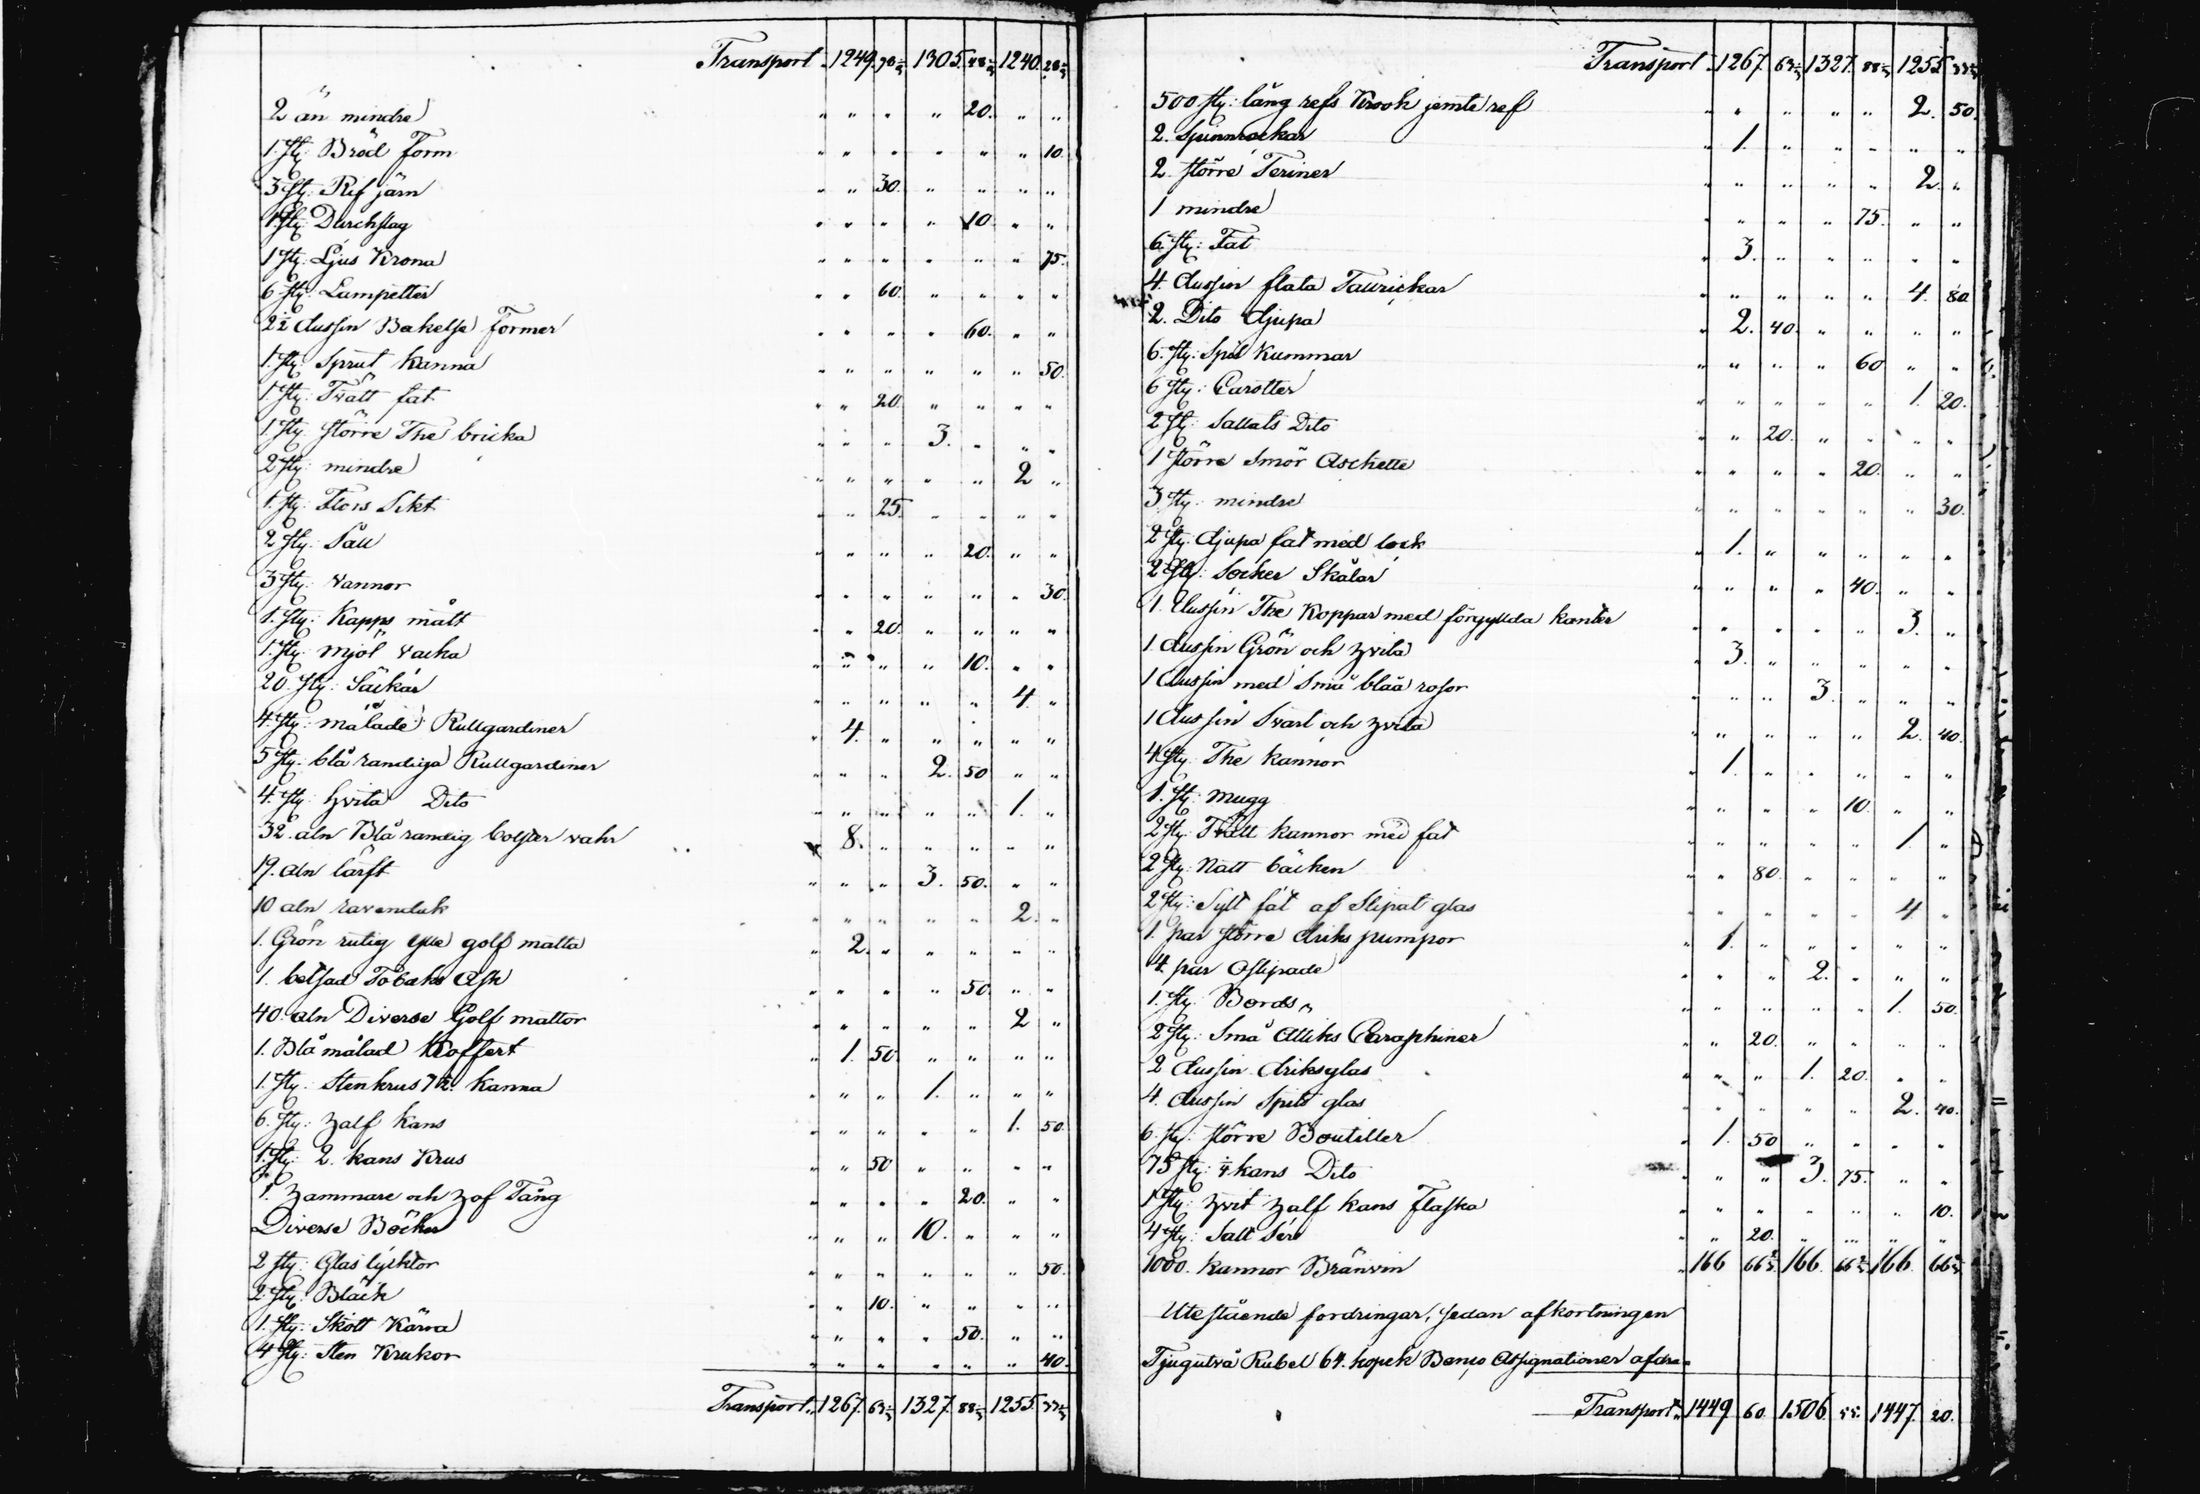 Transport 1249. 98 1305. 48 1240. 28
2 än mindre " " " " 20. " "
1. sty: Bröd Form " " " " " " 10.
3 sty: Rif järn " " 30. " " " "
1 sty Durchslag " " " " 10. " "
1 sty: Ljus Krona " " " " " " 75.
6 sty: Lampetter " " 60. " " " "
2½ dussin Bakelse Former " " " " 60. " "
1. sty: Sprut kanna " " " " " " 50.
1 sty: Tvätt fat " " 20. " " " "
1. sty större The bricka " " " 3. " " "
2 sty: mindre " " " " " 2 "
1. sty: Flors Sikt " " 25. " " " "
2 sty: Såll " " " " 20. " "
3 sty: vannor " " " " " " 30.
1. sty: Kapps mått " " 20. " " " "
1. sty: mjöl vacka " " " " 10. " "
20. sty: Säckar " " " " " 4. "
4. sty: målade Rullgardiner " 4. " " " " "
5 sty: blå randiga Rullgardiner " " " 2. 50 " "
4. sty: hvita Dito " " " " " 1. "
32. aln Blå randig bolster vahr " 8. " " " " "
19. aln lärft " " " 3. 50. " "
10 aln ravenduk " " " " " 2. "
1. Grön rutig ylle golf matta " 2. " " " " "
1. betsad Tobaks Ask " " " " 50. " "
40. aln Diverse Golf mattor " " " " " 2 "
1. Blå målad Koffert " 1. 50. " " " "
1. sty. Stenkrus 7½ kanna " " " 1. " " "
6. sty: half kans " " " " " 1. 50.
1. sty: 2. kans Krus " " 50 " " " "
1. hammare och hof Tång " " " " 20. " "
Diverse Böcker " " " 10. " " "
2 sty: Glas lycktor " " " " " " 50.
2 sty: Bläck " " 10. " " " "
1. sty: Skött Kärra " " " " 50. " "
4 sty: Sten Krukor " " " " " " 40.
Transport. 1267. 63 1327. 88 1255. 33
Transport. 1267. 63 1327. 88 1255. 33
500 sty: lång refs Krook jemte ref " " " " " 2. 50.
2. Spinnrockar " 1. " " " " "
2. större Teriner " " " " " 2. "
1 mindre " " " " 75. " "
6 sty: Fat " 3. " " " " "
4. dussin flata Tallrickar " " " " " 4. 80.
2. Dito djupa " 2. 40. " " " "
6. sty: Spil Kummar " " " " 60 " "
6 sty: Carotter " " " " " 1. 20.
2 sty: Sallats Dito " " 20. " " " "
1 större Smör Aschette " " " " 20. " "
3 sty: mindre " " " " " " 30.
2 sty: djupa fat med lock " 1. " " " " "
2 sty: Socker Skålar " " " " 40. " "
1. dussin The Koppar med förgyllda kanter " " " " " 3. "
1. dussin Grön och hvita " 3. " " " " "
1 dussin med Små blåa rosor " " " 3. " " "
1 dussin Svart och hvita " " " " " 2. 40.
4 sty: The kannor " 1. " " " " "
1. sty: mugg " " " " 10. " "
2 sty: Tvätt kannor med fat " " " " " 1. "
2 sty: Natt bäcken " " 80. " " " "
2 sty: Sylt fat af Slipat glas " " " " " 4 "
1. par större driks pumpor " 1. " " " " "
4. par Oslipade " " " 2. " " "
1. sty: Bords " " " " " " 1. 50.
2 sty: Små Ättiks Caraphiner " " 20. " " " "
2 dussin driksglas " " " 1. 20. " "
4. dussin Spits glas " " " " " 2. 40.
6. sty: större Boutiller " 1. 50 " " " "
75 sty: ¼ kans Dito " " " 3. 75. " "
1 sty: hvit half kans Flaska " " " " " " 10.
4 sty: Salt Ser " " 20. " " " "
1000. kannor Bränvin " 166 66⅔ 166. 66⅔ 166. 66⅔
Utestående fordringar, sedan afkortningen
Tjugutvå Rubel 64. kopek Banco Assignationer afdra=
Transport. 1449 60. 1506 55. 1447. 20.